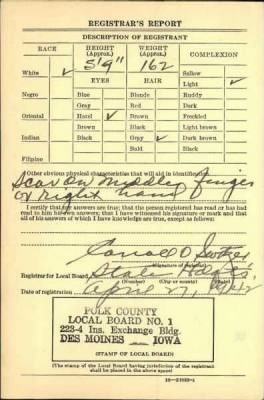 REGISTRAR'S REPORT
DESCRIPTION OF REGISTRANT
RACE HEIGHT (Approx.) WEIGHT (Approx.) COMPLEXION
5'9" 162
White ✓ Sallow
EYES HAIR Light ✓
Negro Blue Blonde Ruddy
Gray Red Dark
Oriental Hazel ✓ Brown Freckled
Brown Black Light brown
Indian Black Gray ✓ Dark brown
Bald Black
Filipino
Other obvious physical characteristics that will aid in identification
Scar on middle finger
of right hand
I certify that my answers are true; that the person registered has read or has had
read to him his own answers; that I have witnessed his signature or mark and that
all of his answers of which I have knowledge are true, except as follows:
(Signature of registrar)
Registrar for Local Board
(Number) (City or county) (State)
Date of registration April 27, 1942
POLK COUNTY
LOCAL BOARD NO. 1
223-4 Ins. Exchange Bldg.
DES MOINES IOWA
(STAMP OF LOCAL BOARD)
(The stamp of the Local Board having jurisdiction of the registrant
shall be placed in the above space)